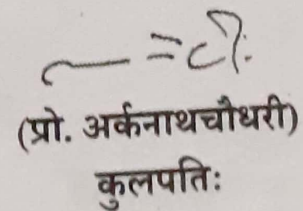 (प्रो. अर्कनाथचौधरी)
कुलपतिः